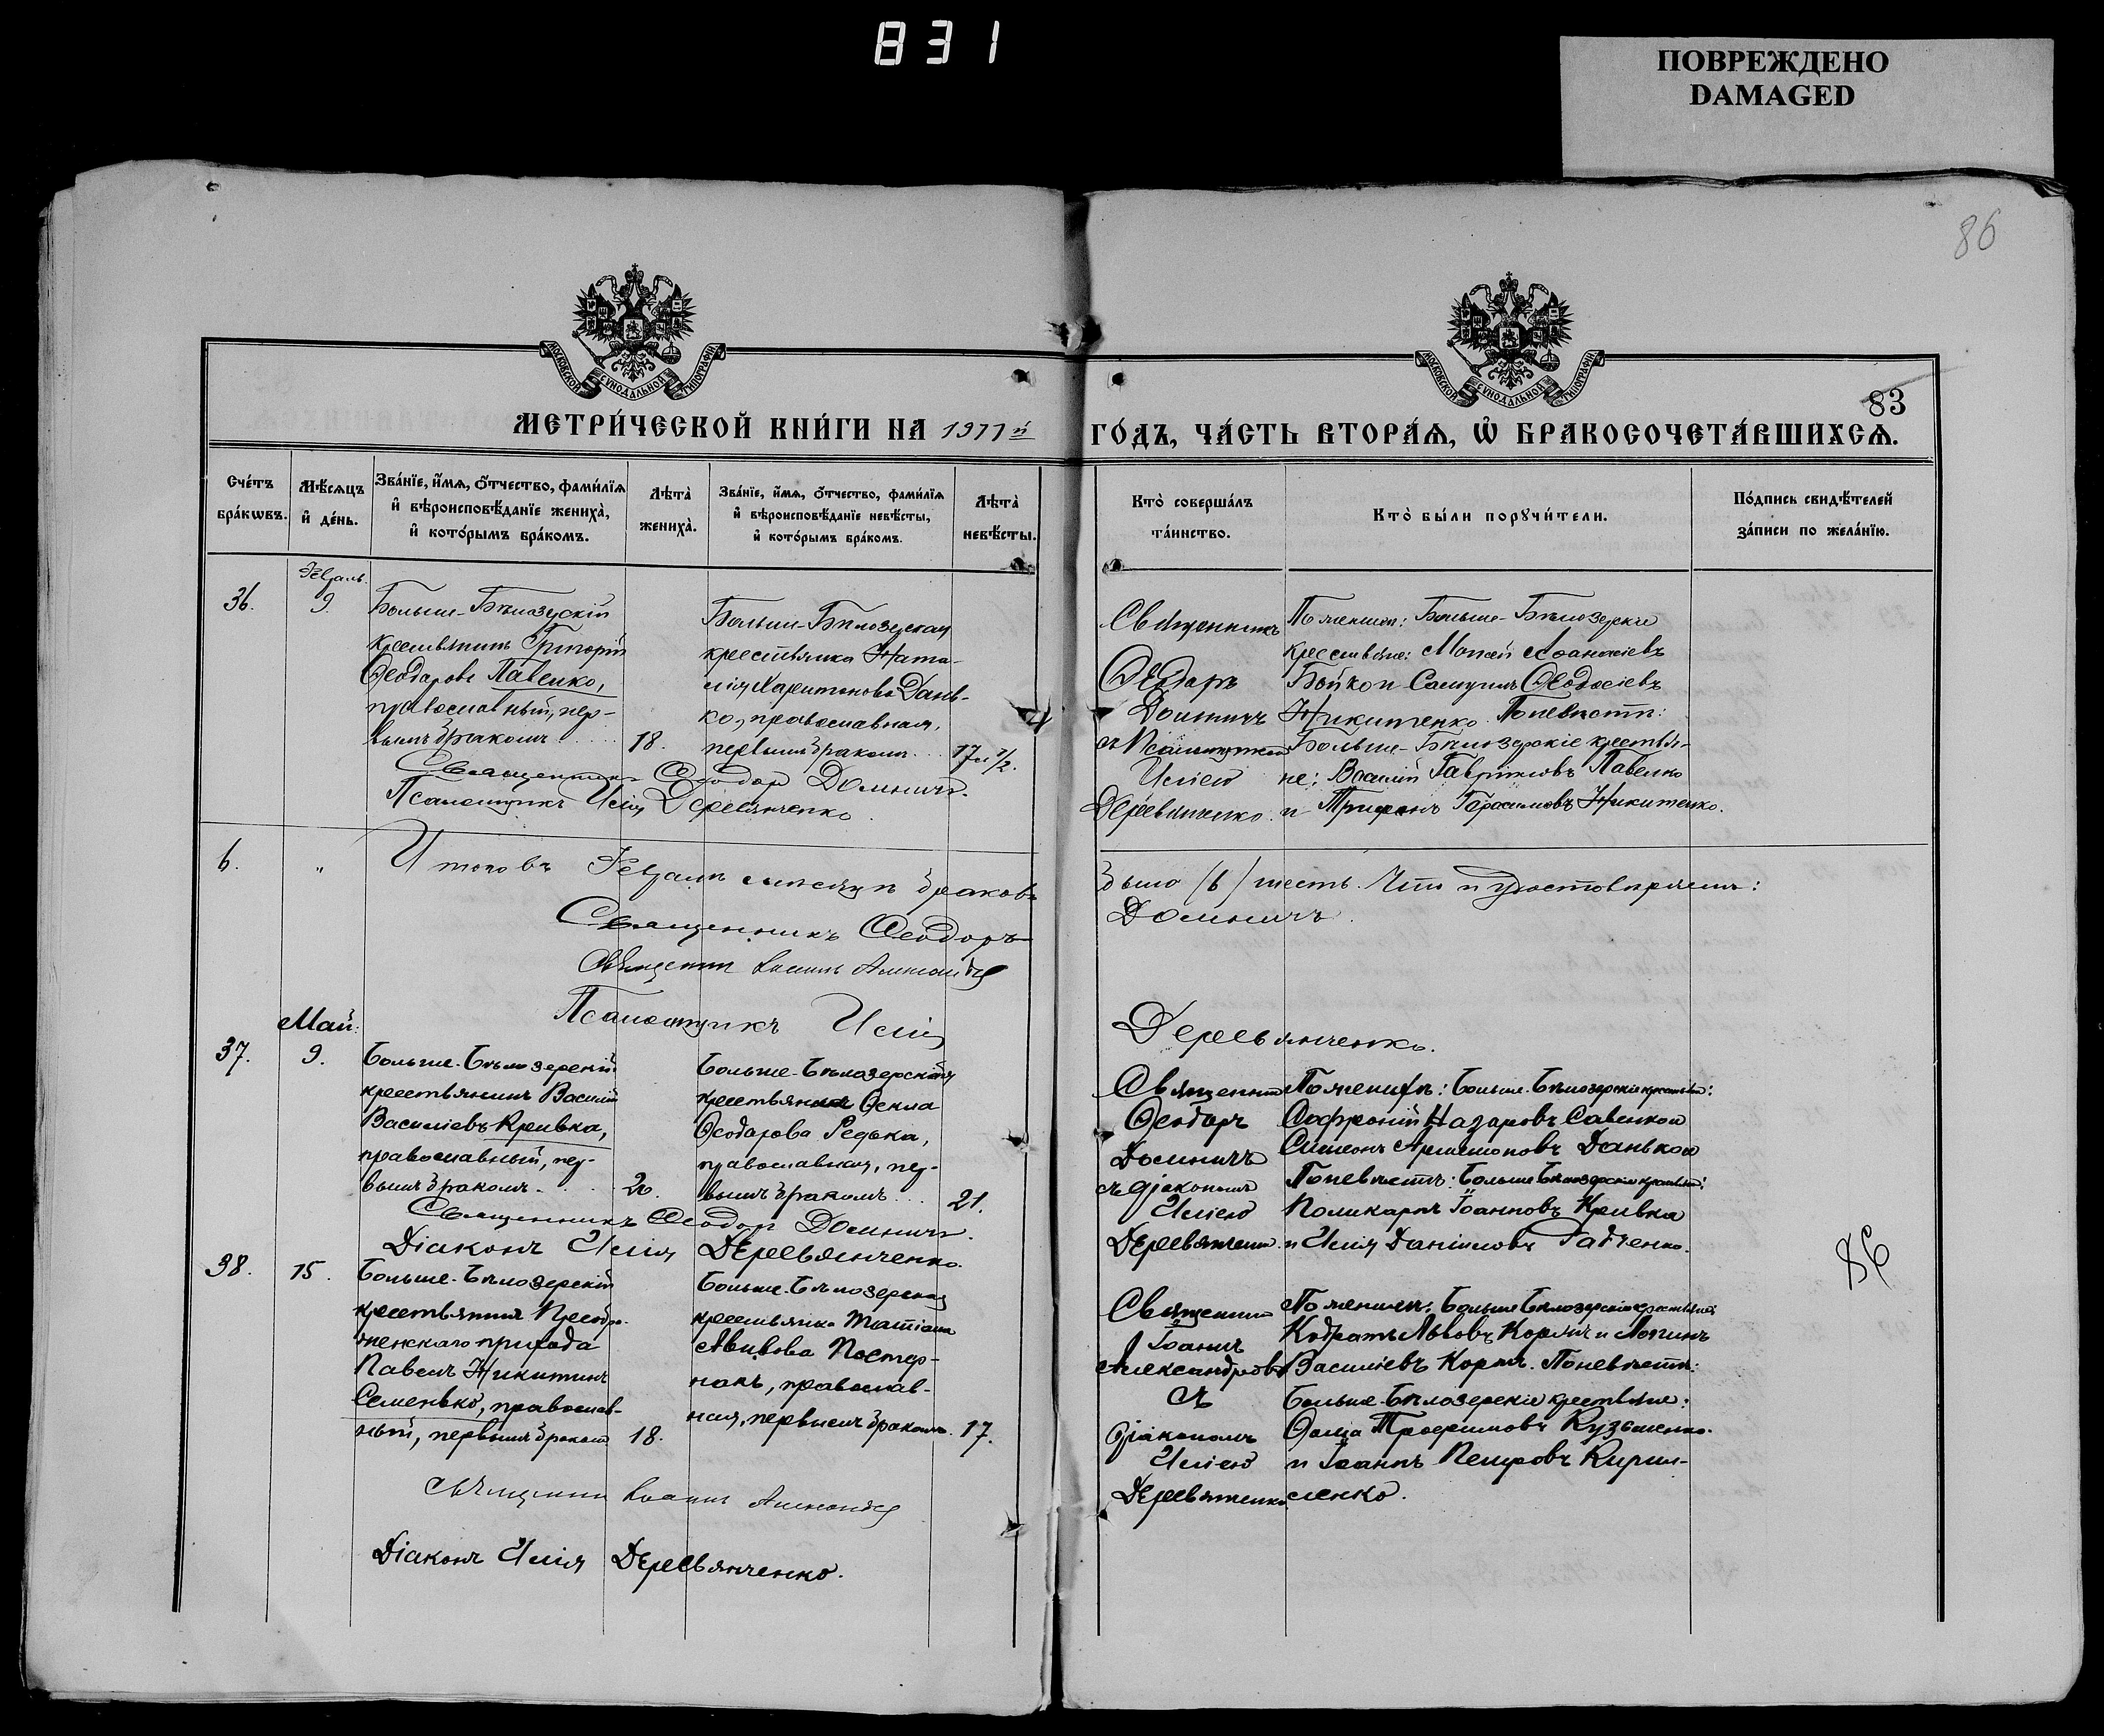 831
ПОВРЕЖДЕНО
DAMAGED
86
МОСКОВСКОЙ СѴНОДАЛЬНОЙ ТИПОГРАФІИ
МОСКОВСКОЙ СѴНОДАЛЬНОЙ ТИПОГРАФІИ
83
МЕТРИ́ЧЕСКОЙ КНИ́ГИ НА 1911 й ГО́ДЪ, ЧА́СТЬ ВТОРА́Ѧ, Ѡ҆ БРАКОСОЧЕТА́ВШИХСѦ.
Сче́тъ бра́кѡвъ.
Мѣ́сѧцъ и҆ де́нь.
Зва́нїе, и҆́мѧ, ѻ҆́тчество, фами́лїѧ
и҆ вѣроисповѣ́данїе жениха̀,
и҆ кото́рымъ бра́комъ.
Лѣта̀
жениха̀.
Зва́нїе, и҆́мѧ, ѻ҆́тчество, фами́лїѧ
и҆ вѣроисповѣ́данїе невѣ́сты,
и҆ кото́рымъ бра́комъ.
Лѣта̀
невѣ́сты.
Кто̀ соверша́лъ
та́инство.
Кто̀ бы́ли порꙋчи́тели.
По́дпись свидѣ́телей
за́писи по жела́нїю.
36.
9.
Больше-Бѣлозерскій
крестьянинъ Григорій
Ѳеодоровъ Павенко,
православный, пер-
вымъ бракомъ
18.
Больше-Бѣлозерская
крестьянка Ната-
лія Харитонова Дань-
ко, православная,
первымъ бракомъ
17 и 1/2.
Священникъ
Ѳеодоръ
Домничъ
съ Псаломщикомъ
Иліею
Деревянченко.
По женихѣ: Больше-Бѣлозерскіе
крестьяне: Моисей Аѳанасіевъ
Бойко и Самуилъ Ѳеодосіевъ
Никитенко. По невѣстѣ:
Больше-Бѣлозерскіе крестья-
не: Василій Гавріиловъ Павенко
и Трифонъ Герасимовъ Никитенко.
Священникъ Ѳеодоръ Домничъ.
Псаломщикъ Илія Деревянченко
6.
"
Итого въ мѣсяцѣ браковъ
было (6) шесть. Что и удостовѣряемъ:
Священникъ Ѳеодоръ Домничъ.
Псаломщикъ Илія Деревянченко.
Май:
37.
9.
Больше-Бѣлозерскій
крестьянинъ Василій
Василіевъ Кривка,
православный, пер-
вымъ бракомъ
20.
Больше-Бѣлозерская
крестьянка Ѳекла
Ѳеодорова Редька,
православная, пер-
вымъ бракомъ
21.
Ѳеодоръ
Домничъ
съ діакономъ
Иліею
По женихѣ: Больше-Бѣлозерскіе крестьяне:
Софроній Назаровъ Савенко и
Симеонъ Данько и
По невѣстѣ: Больше-Бѣлозерскіе крестьяне:
Поликарпъ Іоанновъ Кривка
и Илія Даніиловъ
Священникъ Ѳеодоръ Домничъ.
Діаконъ Илія Деревянченко.
86
38.
15.
Больше-Бѣлозерскій
крестьянинъ Преобра-
женскаго прихода
Павелъ Никитинъ
Семенько, православ-
ный, первымъ бракомъ
18.
Больше-Бѣлозерская
крестьянка Татіана
Постер-
накъ, православ-
ная, первымъ бракомъ.
17.
Іоаннъ
Александровъ
съ
діакономъ
Иліею
По женихѣ: Больше-Бѣлозерскіе крестьяне:
Василіевъ По невѣстѣ:
Больше-Бѣлозерскіе крестьяне:
Ѳома Трофимовъ Кузьменко
и Іоаннъ Петровъ Кирил-
ленко.
Діаконъ Илія Деревянченко.